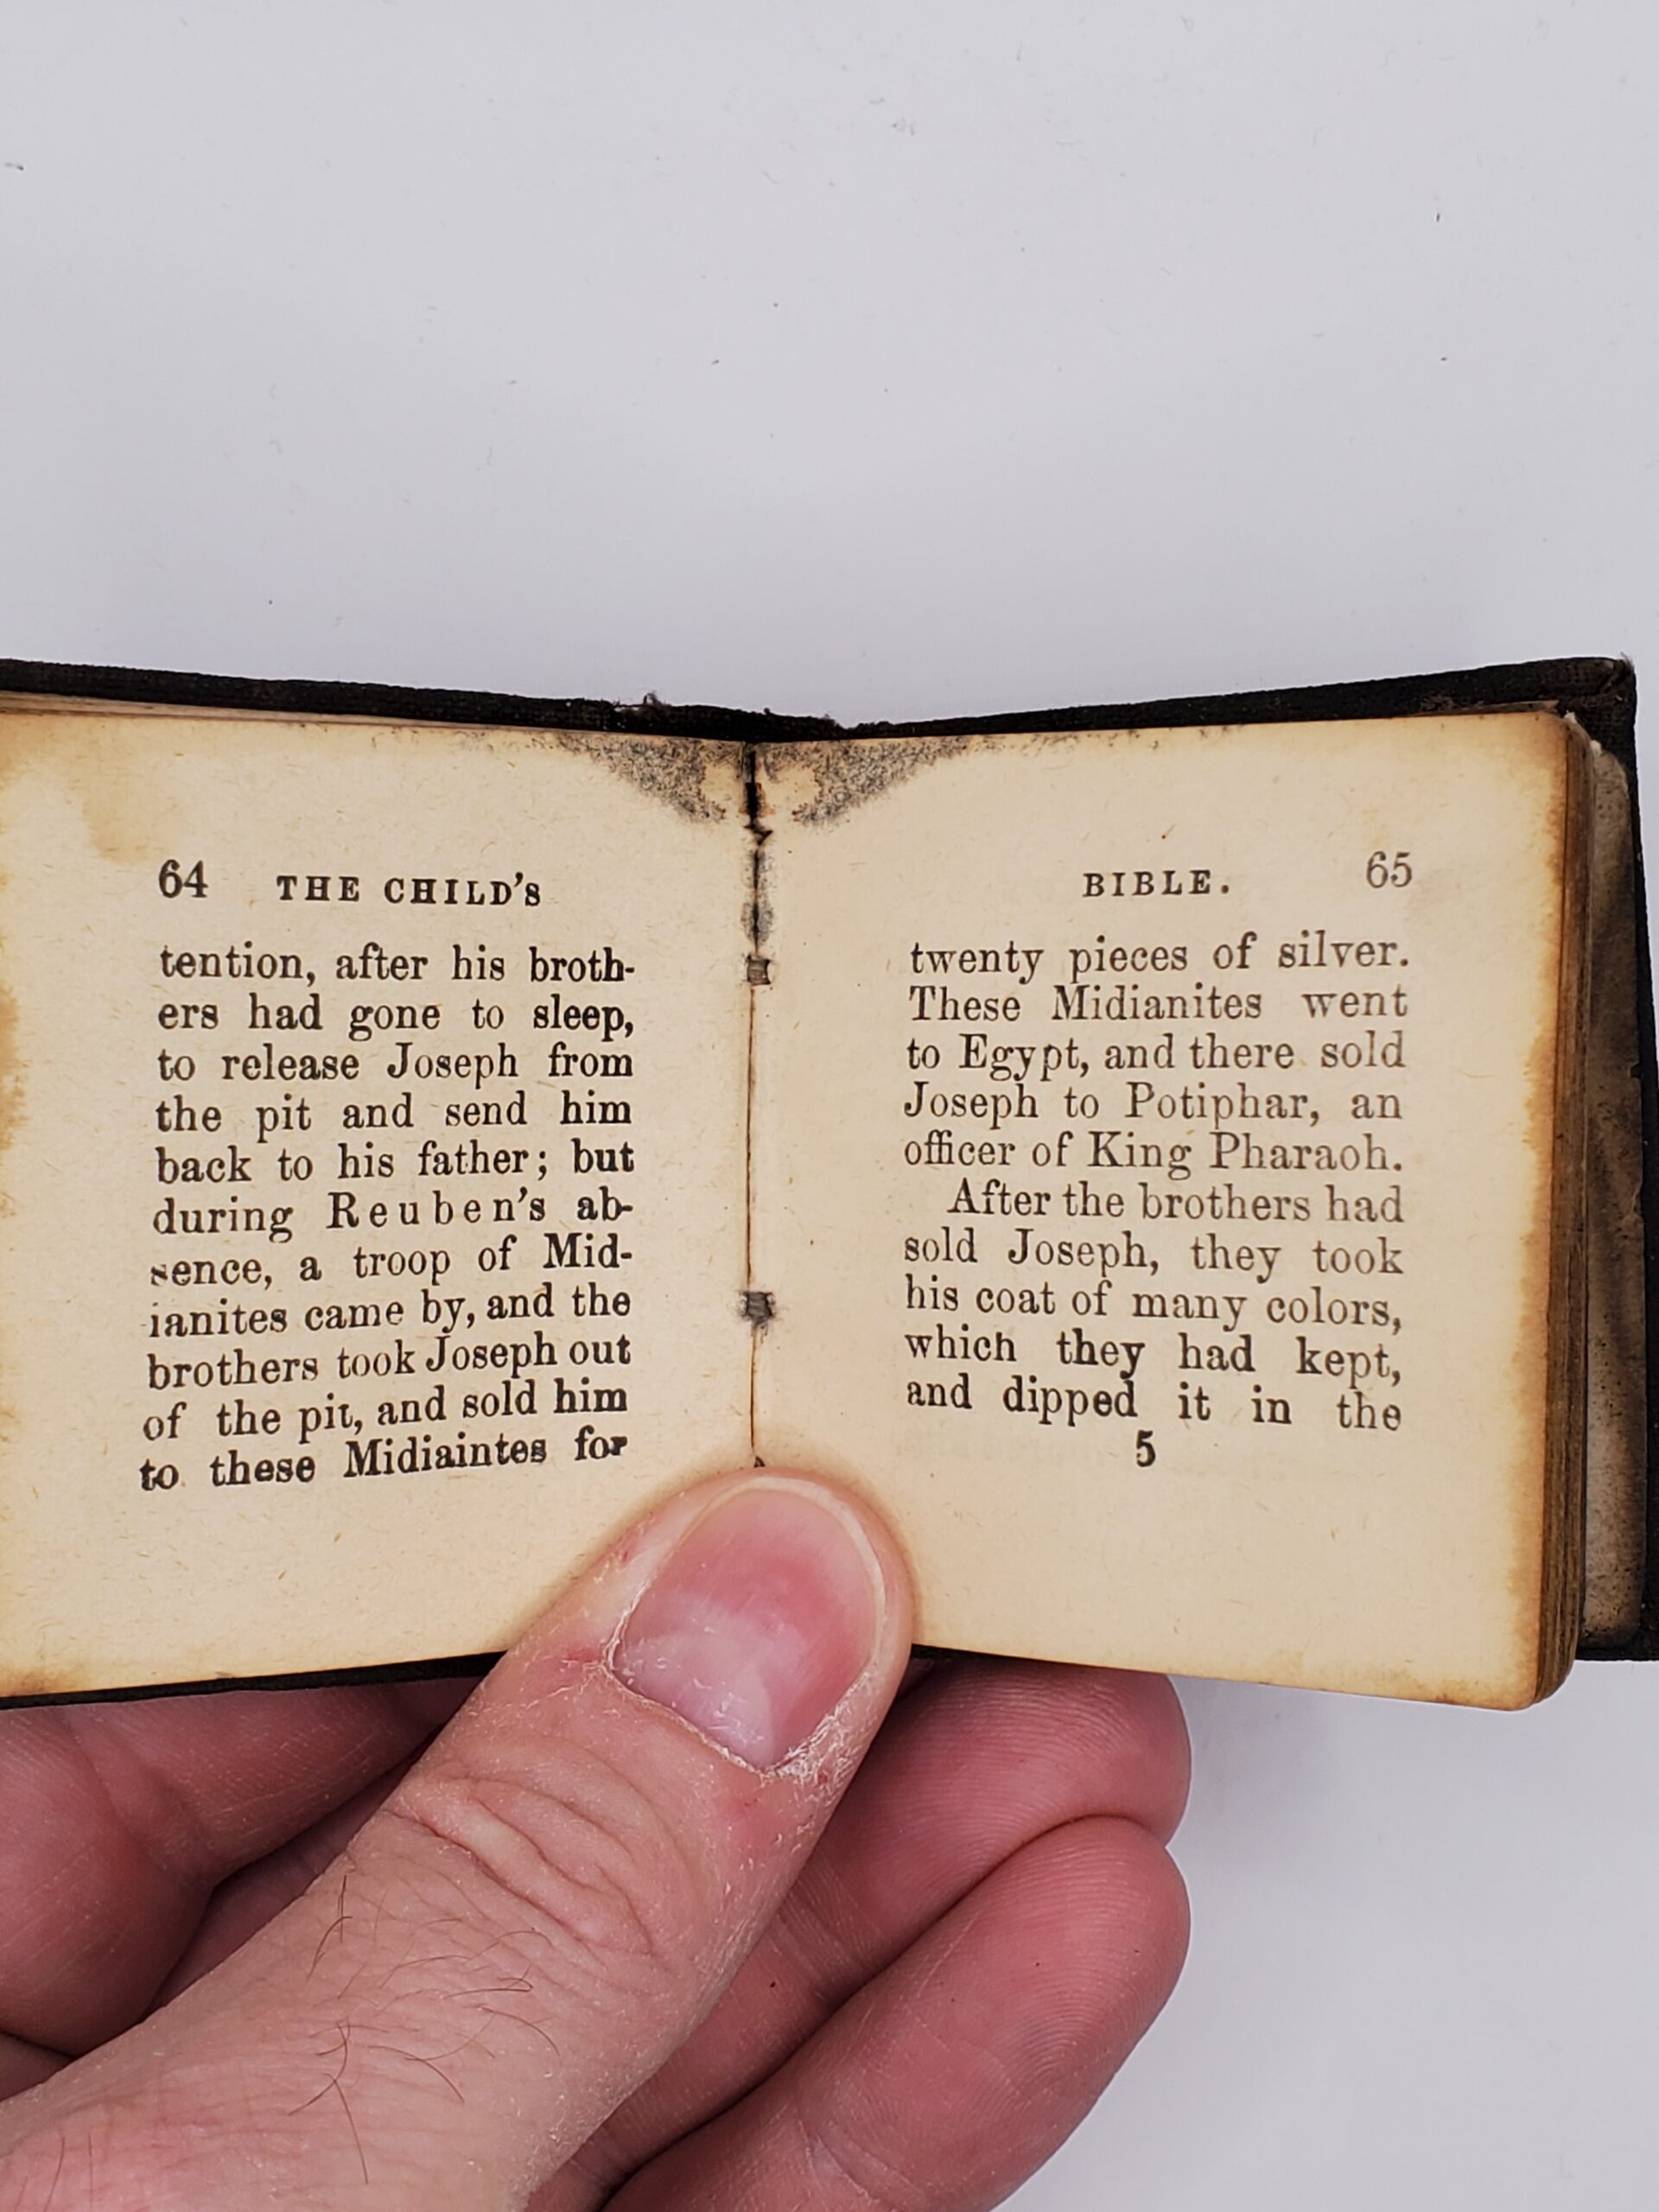 64 THE CHILD'S
tention, after his broth-
ers had gone to sleep,
to release Joseph from
the pit and send him
back to his father; but
during Reuben's ab-
sence, a troop of Mid-
ianites came by, and the
brothers took Joseph out
of the pit, and sold him
to these Midiaintes for
BIBLE. 65
twenty pieces of silver.
These Midianites went
to Egypt, and there sold
Joseph to Potiphar, an
officer of King Pharaoh.
After the brothers had
sold Joseph, they took
his coat of many colors,
which they had kept,
and dipped it in the
5